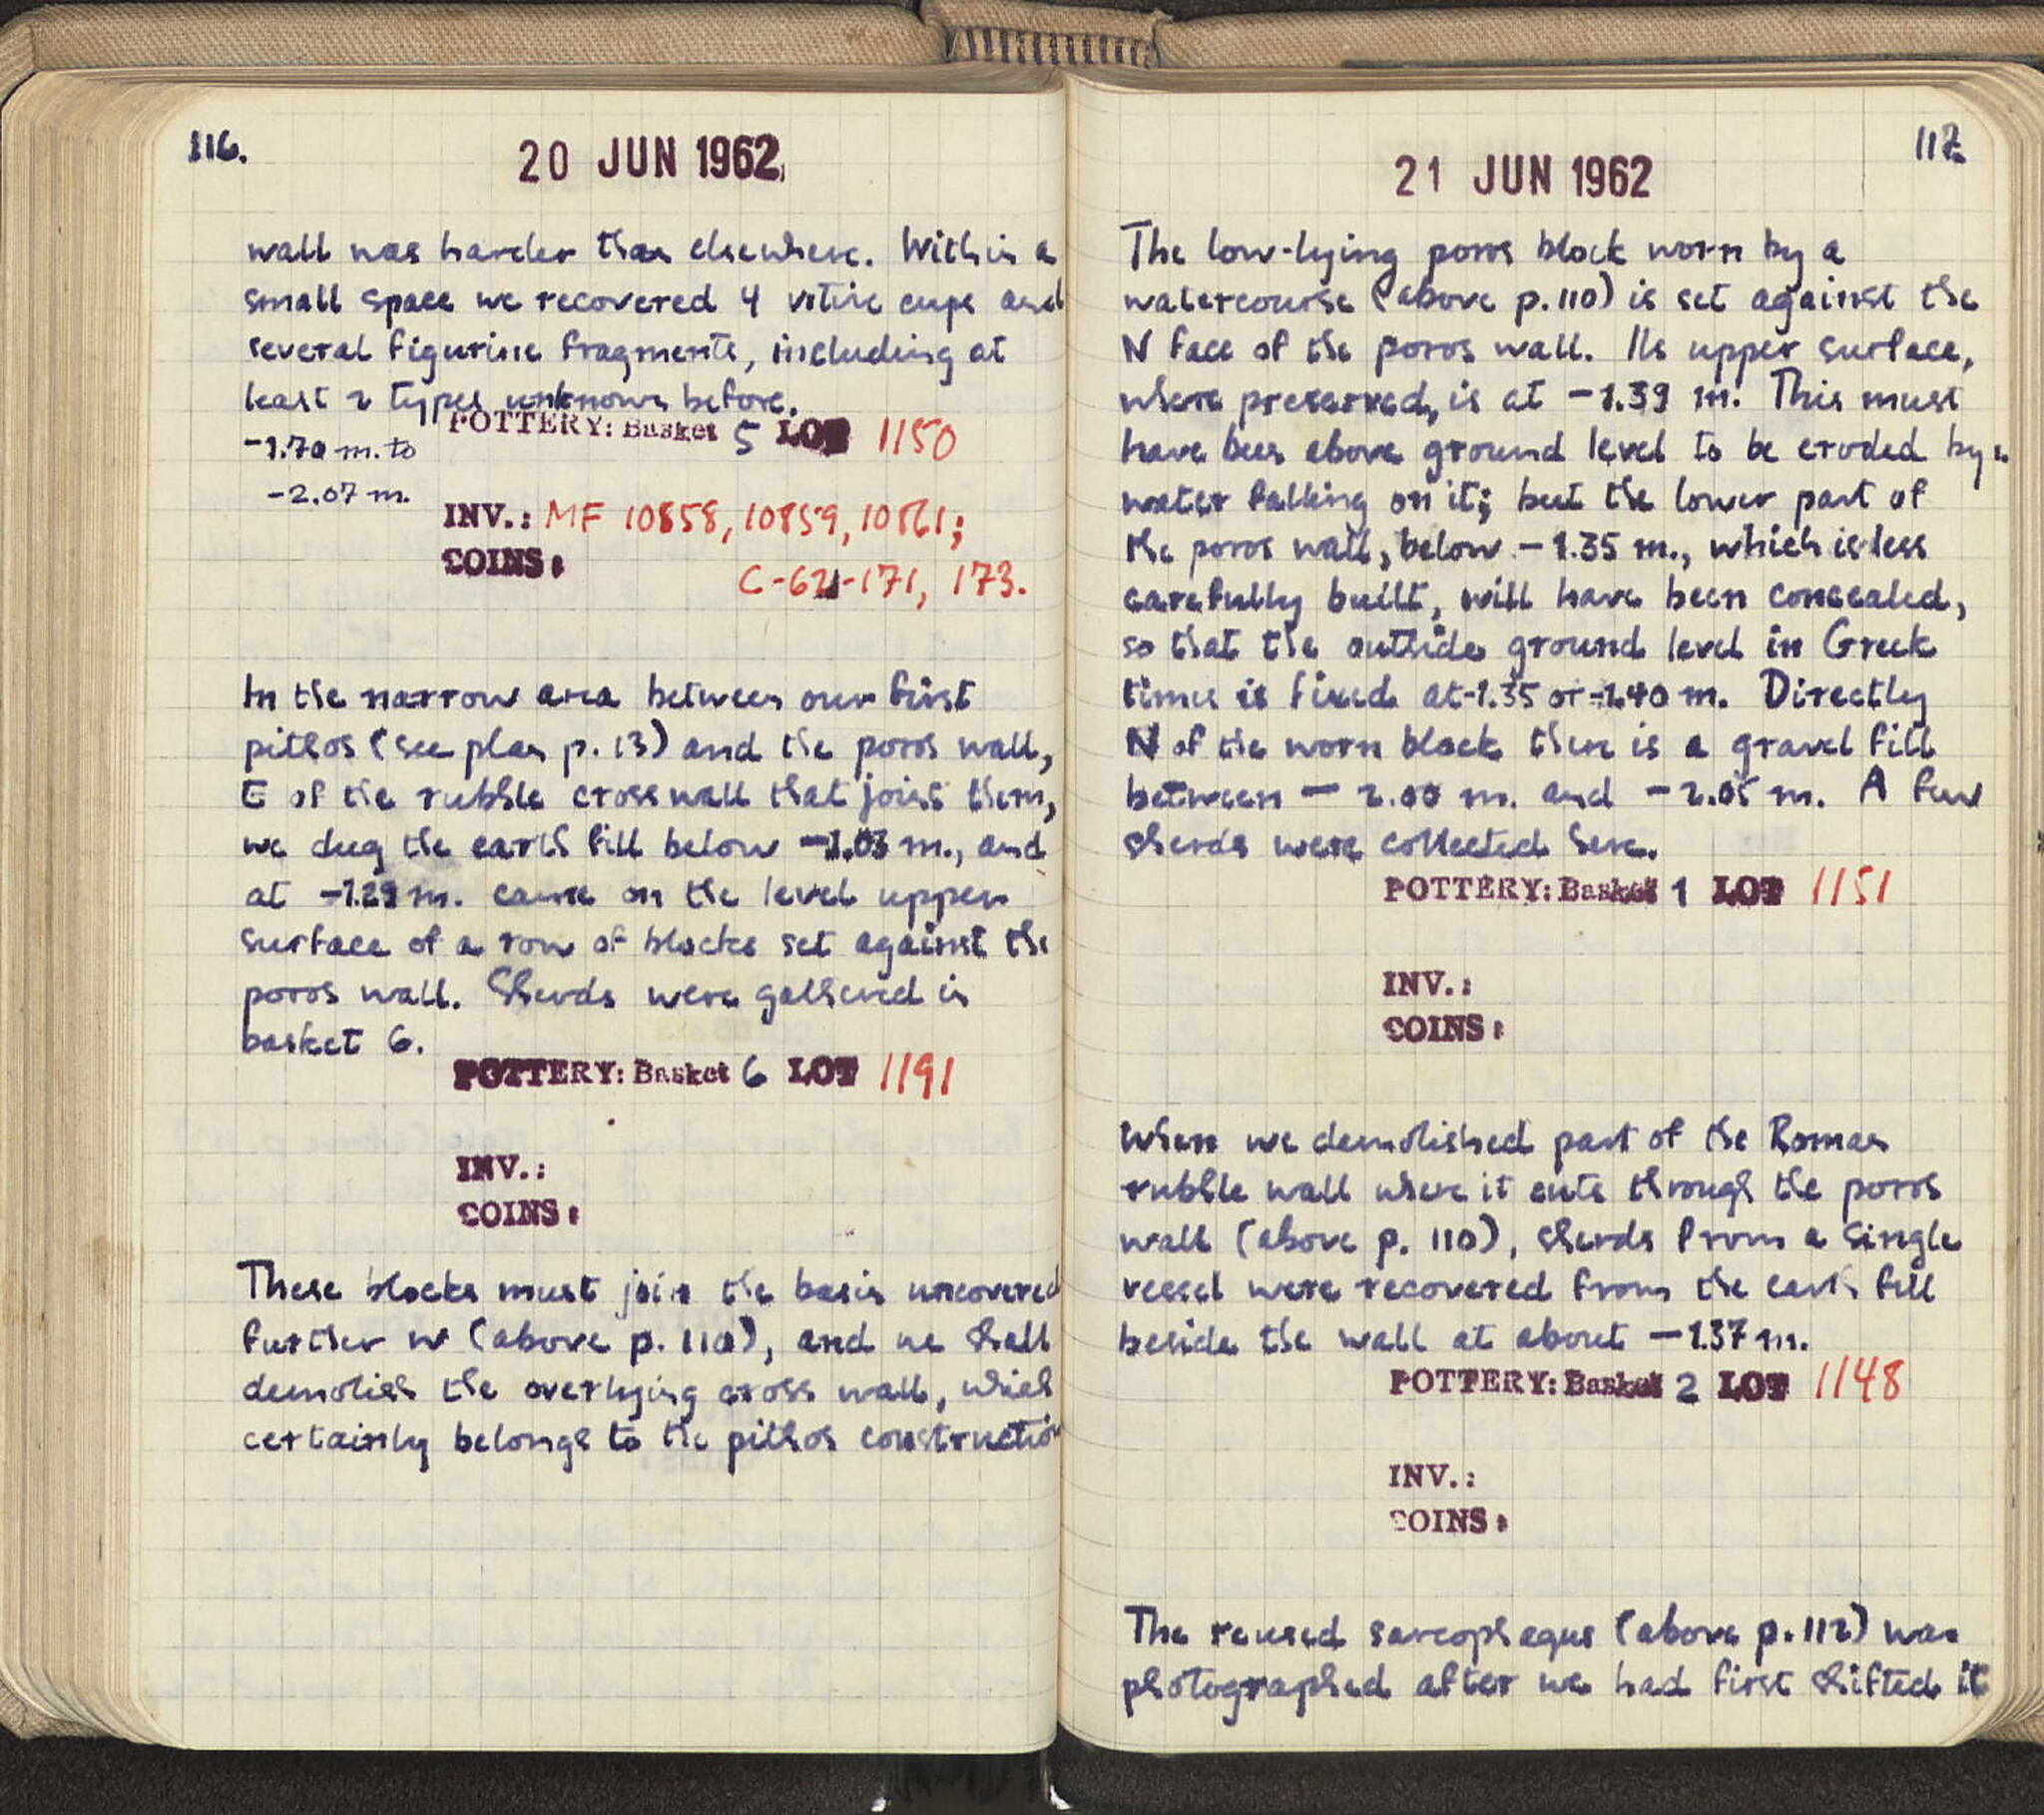 116.
20 JUN 1962
wall was harder than elsewhere. Within a
small space we recovered 4 votive cups and
several figurine fragments, including at
least 2 types unknown before.
POTTERY: Basket 5 LOT 1150
-1.70 m. to
-2.07 m.
INV.: MF 10858, 10859, 10861;
COINS:
C-62-171, 173.
In the narrow area between our first
pithos (see plan p. 13) and the poros wall,
E of the rubble cross wall that joins them,
we dug the earth fill below -1.03 m., and
at -1.29 m. came on the level upper
surface of a row of blocks set against the
poros wall. Sherds were gathered in
basket 6.
POTTERY: Basket 6 LOT 1191
INV.:
COINS:
These blocks must join the basis uncovered
further W (above p. 110), and we shall
demolish the overlying cross wall, which
certainly belongs to the pithos construction
117.
21 JUN 1962
The low-lying poros block worn by a
watercourse (above p. 110) is set against the
N face of the poros wall. Its upper surface,
where preserved, is at -1.39 m. This must
have been above ground level to be eroded by
water falling on it; but the lower part of
the poros wall, below -1.35 m., which is less
carefully built, will have been concealed,
so that the outside ground level in Greek
times is fixed at -1.35 or -1.40 m. Directly
N of the worn block there is a gravel fill
between - 2.00 m. and -2.05 m. A few
sherds were collected here.
POTTERY: Basket 1 LOT 1151
INV.:
COINS:
When we demolished part of the Roman
rubble wall where it cuts through the poros
wall (above p. 110), sherds from a single
vessel were recovered from the earth fill
beside the wall at about -1.37 m.
POTTERY: Basket 2 LOT 1148
INV.:
COINS:
The reused sarcophagus (above p. 112) was
photographed after we had first shifted it